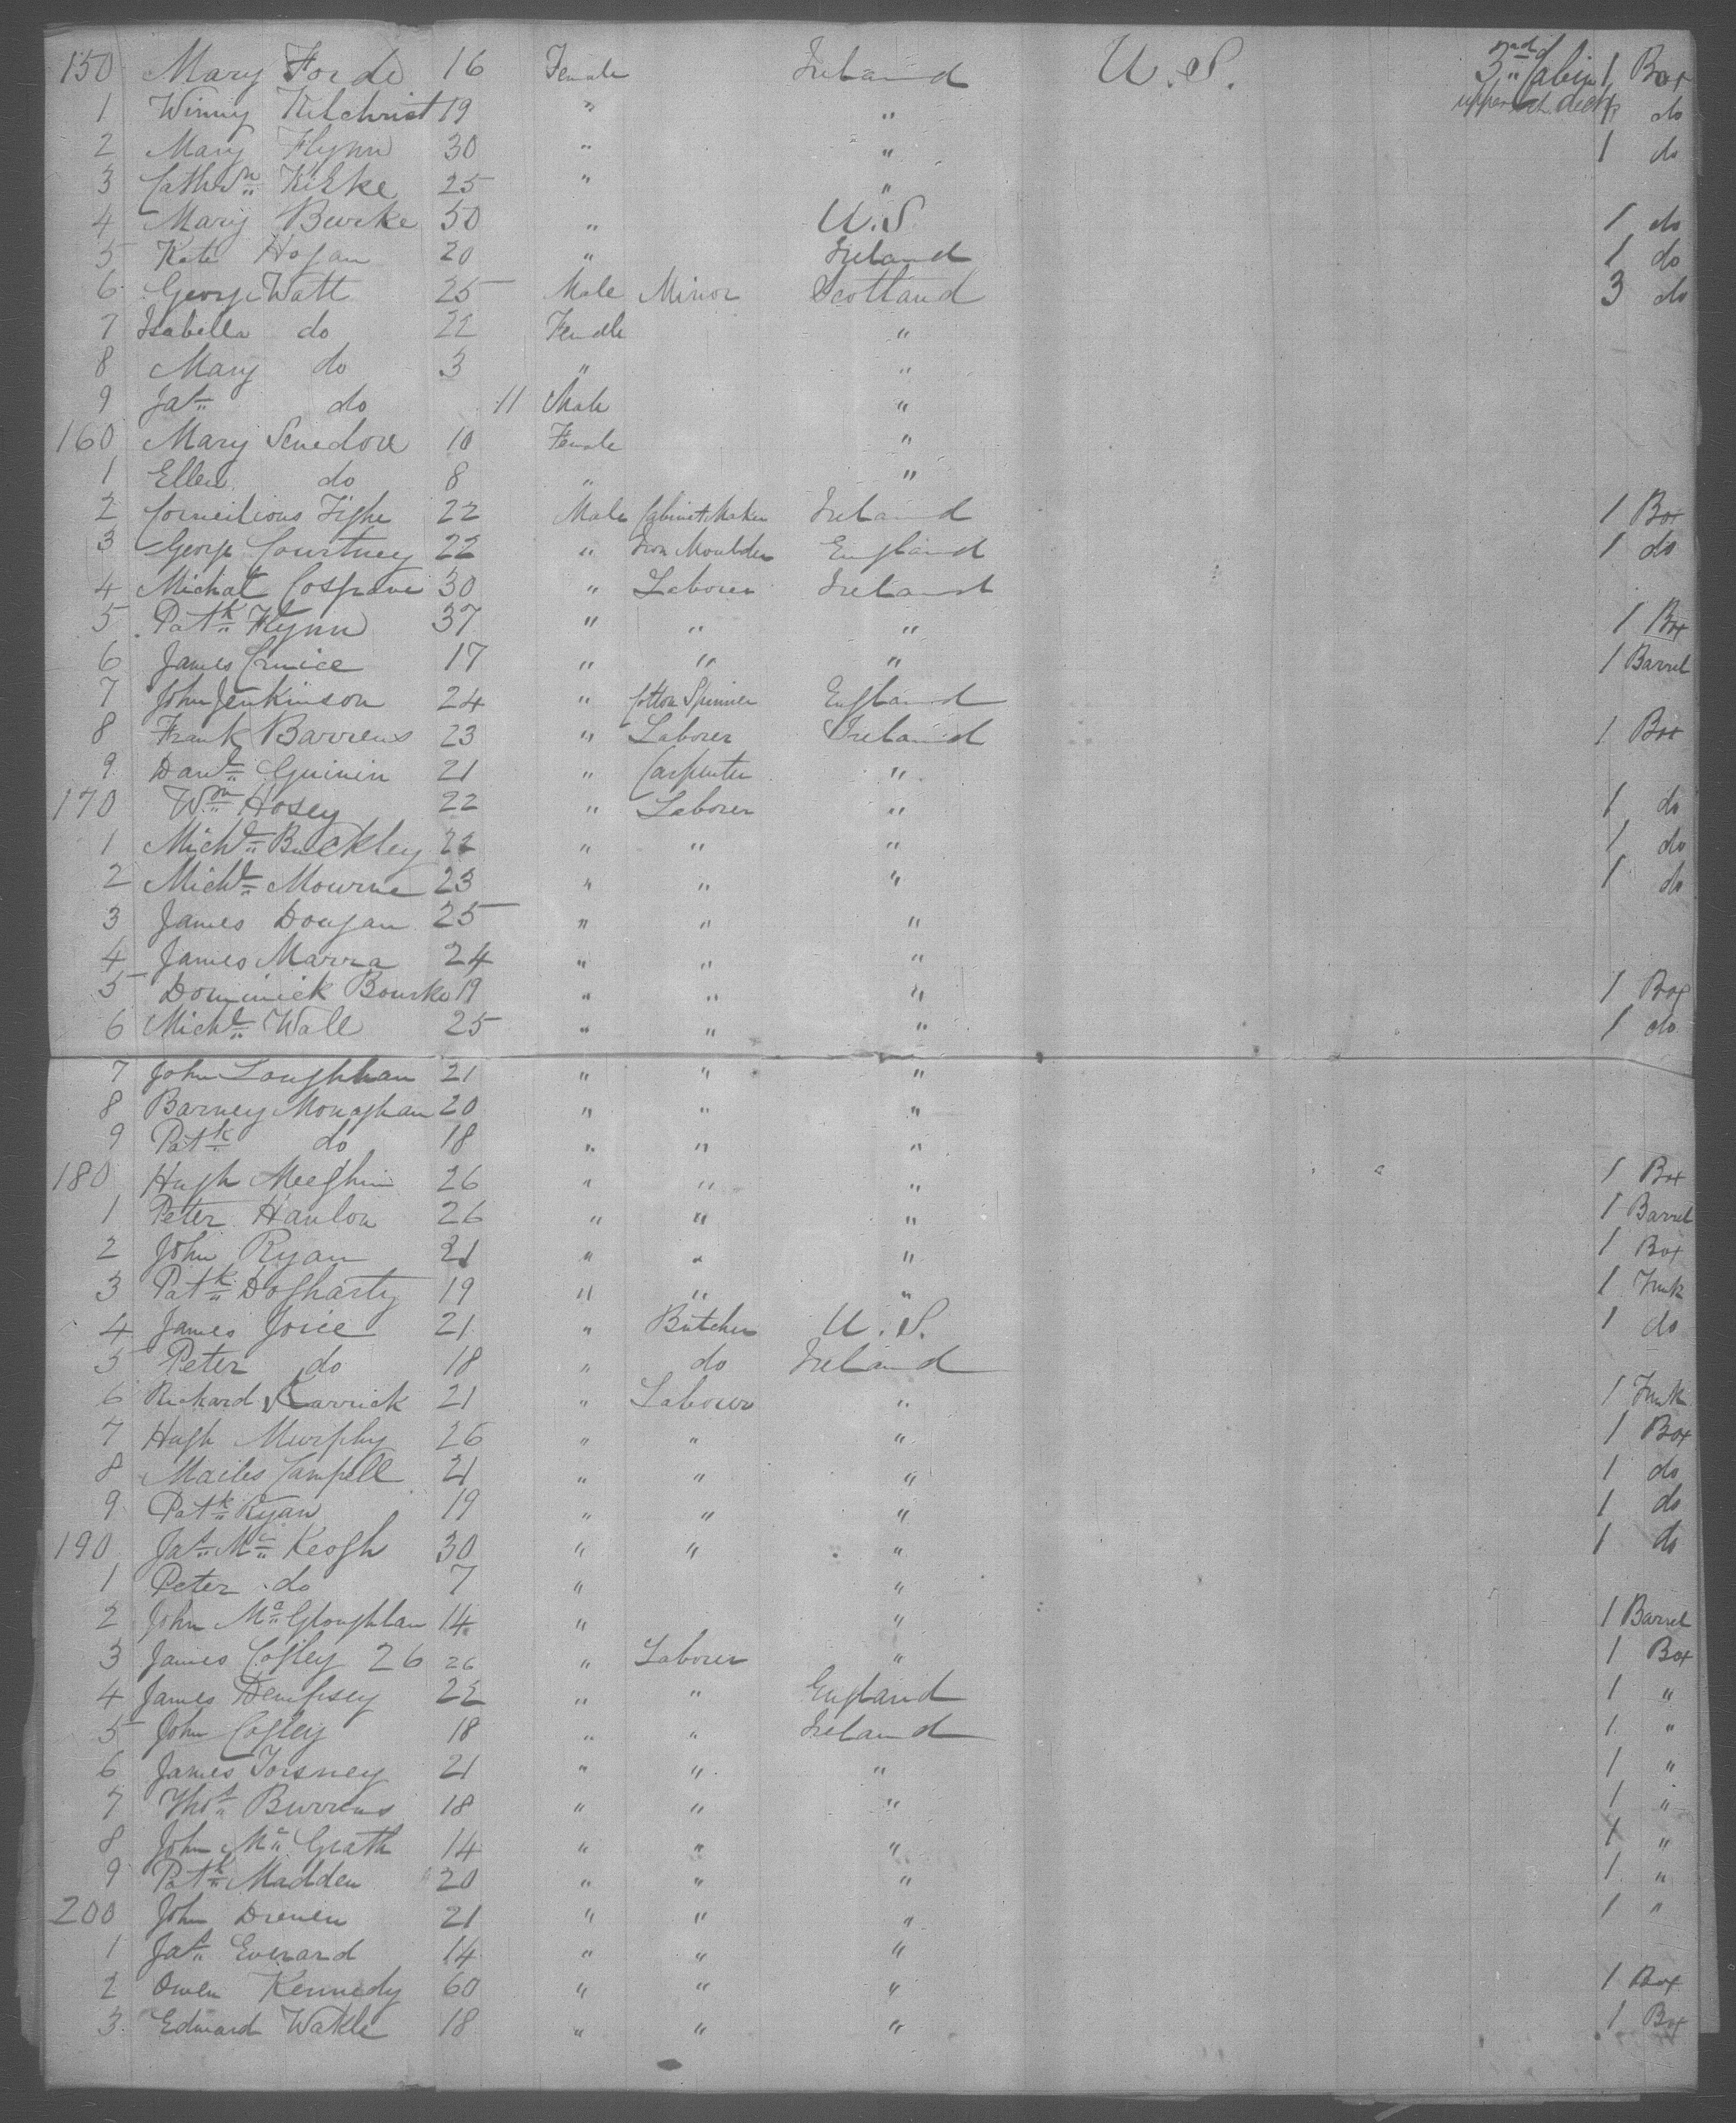 150 Mary Forde 16 Female Ireland U.S. 3rd Cabin 1 Box
1 Winny Kilchrist 19 " " upper deck 1 do
2 Mary Flynn 30 " " 1 do
3 Cathrn Kirke 25 " "
4 Mary Burke 50 " U.S. 1 do
5 Kate Hogan 20 " Ireland 1 do
6 George Watt 25 Male Minor Scotland 3 do
7 Isabella do 22 Female "
8 Mary do 3 " "
9 Jas do 11 Male "
160 Mary Senedore 10 Female "
1 Ellen do 8 " "
2 Corneilious Tighe 22 Male Cabinet Maker Ireland 1 Box
3 George Courtney 22 " Iron Moulder England 1 do
4 Michal Cosgrave 30 " Laborer Ireland
5 Patk Flynn 37 " " " 1 Box
6 James Crnice 17 " " " 1 Barrel
7 John Jenkinson 24 " Cotton Spinner England
8 Frank Barrens 23 " Laborer Ireland 1 Box
9 Danl Guinin 21 " Carpenter "
170 Wm Hosey 22 " Laborer " 1 do
1 Michl Buckley 22 " " " 1 do
2 Michl Mourne 23 " " " 1 do
3 James Dougan 25 " " "
4 James Marra 24 " " "
5 Dominick Bourke 19 " " " 1 Box
6 Michl Wall 25 " " " 1 do
7 John Loughhan 21 " " "
8 Barney Monaghan 20 " " "
9 Patk do 18 " " "
180 Hugh Meeghin 26 " " " 1 Box
1 Peter Hanlon 26 " " " 1 Barrel
2 John Ryan 21 " " " 1 Box
3 Patk Dogharty 19 " " " 1 Trunk
4 James Joice 21 " Butcher U.S. 1 do
5 Peter do 18 " do Ireland
6 Richard Karrick 21 " Laborer " 1 Trunk
7 Hugh Murphy 26 " " " 1 Box
8 Mailes Campell 21 " " " 1 do
9 Patk Ryan 19 " " " 1 do
190 Jas Mc Keogh 30 " " " 1 do
1 Peter do 7 " "
2 John Mc Gloughlan 14 " " 1 Barrel
3 James Cogley 26 26 " Laborer " 1 Box
4 James Dempsey 22 " " England 1 "
5 John Cogley 18 " " Ireland 1 "
6 James Torsney 21 " " " 1 "
7 Thos Burrens 18 " " " 1 "
8 John Mc Grath 14 " " " 1 "
9 Patk Madden 20 " " " 1 "
200 John Drenen 21 " " " 1 "
1 Jas Everard 14 " " "
2 Owen Kennedy 60 " " " 1 Box
3 Edward Wakle 18 " " " 1 Box